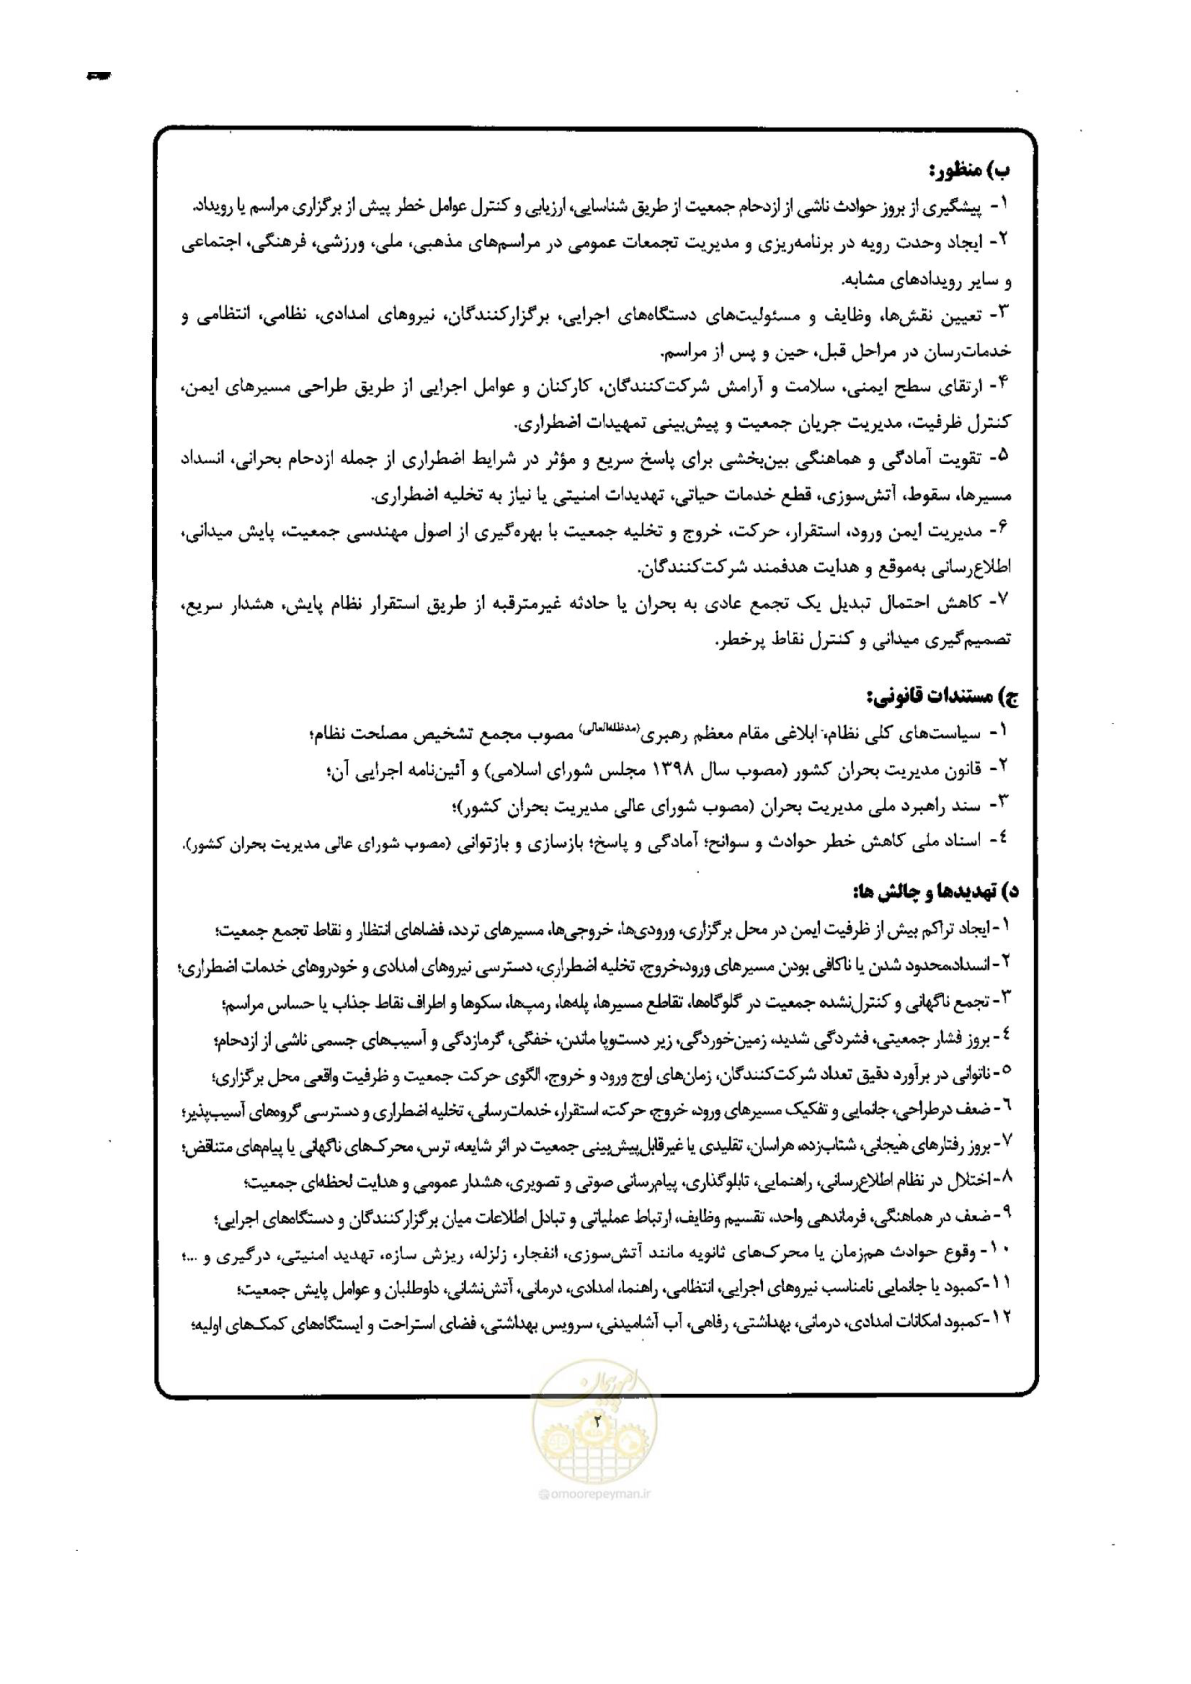 ب) منظور:
۱- پیشگیری از بروز حوادث ناشی از ازدحام جمعیت از طریق شناسایی، ارزیابی و کنترل عوامل خطر پیش از برگزاری مراسم یا رویداد.
۲- ایجاد وحدت رویه در برنامه‌ریزی و مدیریت تجمعات عمومی در مراسم‌های مذهبی، ملی، ورزشی، فرهنگی، اجتماعی
و سایر رویدادهای مشابه.
۳- تعیین نقش‌ها، وظایف و مسئولیت‌های دستگاه‌های اجرایی، برگزارکنندگان، نیروهای امدادی، نظامی، انتظامی و
خدمات‌رسان در مراحل قبل، حین و پس از مراسم.
۴- ارتقای سطح ایمنی، سلامت و آرامش شرکت‌کنندگان، کارکنان و عوامل اجرایی از طریق طراحی مسیرهای ایمن،
کنترل ظرفیت، مدیریت جریان جمعیت و پیش‌بینی تمهیدات اضطراری.
۵- تقویت آمادگی و هماهنگی بین‌بخشی برای پاسخ سریع و مؤثر در شرایط اضطراری از جمله ازدحام بحرانی، انسداد
مسیرها، سقوط، آتش‌سوزی، قطع خدمات حیاتی، تهدیدات امنیتی یا نیاز به تخلیه اضطراری.
۶- مدیریت ایمن ورود، استقرار، حرکت، خروج و تخلیه جمعیت با بهره‌گیری از اصول مهندسی جمعیت، پایش میدانی،
اطلاع‌رسانی به‌موقع و هدایت هدفمند شرکت‌کنندگان.
۷- کاهش احتمال تبدیل یک تجمع عادی به بحران یا حادثه غیرمترقبه از طریق استقرار نظام پایش، هشدار سریع،
تصمیم‌گیری میدانی و کنترل نقاط پرخطر.
ج) مستندات قانونی:
۱- سیاست‌های کلی نظام، ابلاغی مقام معظم رهبری(مدظله‌العالی) مصوب مجمع تشخیص مصلحت نظام؛
۲- قانون مدیریت بحران کشور (مصوب سال ۱۳۹۸ مجلس شورای اسلامی) و آئین‌نامه اجرایی آن؛
۳- سند راهبرد ملی مدیریت بحران (مصوب شورای عالی مدیریت بحران کشور)؛
۴- اسناد ملی کاهش خطر حوادث و سوانح؛ آمادگی و پاسخ؛ بازسازی و بازتوانی (مصوب شورای عالی مدیریت بحران کشور).
د) تهدیدها و چالش ها:
۱-ایجاد تراکم بیش از ظرفیت ایمن در محل برگزاری، ورودی‌ها، خروجی‌ها، مسیرهای تردد، فضاهای انتظار و نقاط تجمع جمعیت؛
۲-انسداد،محدود شدن یا ناکافی بودن مسیرهای ورود،خروج، تخلیه اضطراری، دسترسی نیروهای امدادی و خودروهای خدمات اضطراری؛
۳-تجمع ناگهانی و کنترل‌نشده جمعیت در گلوگاه‌ها، تقاطع مسیرها، پله‌ها، رمپ‌ها، سکوها و اطراف نقاط جذاب یا حساس مراسم؛
۴-بروز فشار جمعیتی، فشردگی شدید، زمین‌خوردگی، زیر دست‌وپا ماندن، خفگی، گرمازدگی و آسیب‌های جسمی ناشی از ازدحام؛
۵-ناتوانی در برآورد دقیق تعداد شرکت‌کنندگان، زمان‌های اوج ورود و خروج، الگوی حرکت جمعیت و ظرفیت واقعی محل برگزاری؛
۶-ضعف درطراحی، جانمایی و تفکیک مسیرهای ورود، خروج، حرکت، استقرار، خدمات‌رسانی، تخلیه اضطراری و دسترسی گروه‌های آسیب‌پذیر؛
۷-بروز رفتارهای هیجانی، شتاب‌زده، هراسان، تقلیدی یا غیرقابل‌پیش‌بینی جمعیت در اثر شایعه، ترس، محرک‌های ناگهانی یا پیام‌های متناقض؛
۸-اختلال در نظام اطلاع‌رسانی، راهنمایی، تابلوگذاری، پیام‌رسانی صوتی و تصویری، هشدار عمومی و هدایت لحظه‌ای جمعیت؛
۹-ضعف در هماهنگی، فرماندهی واحد، تقسیم وظایف، ارتباط عملیاتی و تبادل اطلاعات میان برگزارکنندگان و دستگاه‌های اجرایی؛
۱۰- وقوع حوادث هم‌زمان یا محرک‌های ثانویه مانند آتش‌سوزی، انفجار، زلزله، ریزش سازه، تهدید امنیتی، درگیری و ...؛
۱۱-کمبود یا جانمایی نامناسب نیروهای اجرایی، انتظامی، راهنما، امدادی، درمانی، آتش‌نشانی، داوطلبان و عوامل پایش جمعیت؛
۱۲-کمبود امکانات امدادی، درمانی، بهداشتی، رفاهی، آب آشامیدنی، سرویس بهداشتی، فضای استراحت و ایستگاه‌های کمک‌های اولیه؛
امور پیمان
۲
@omoorepeyman.ir